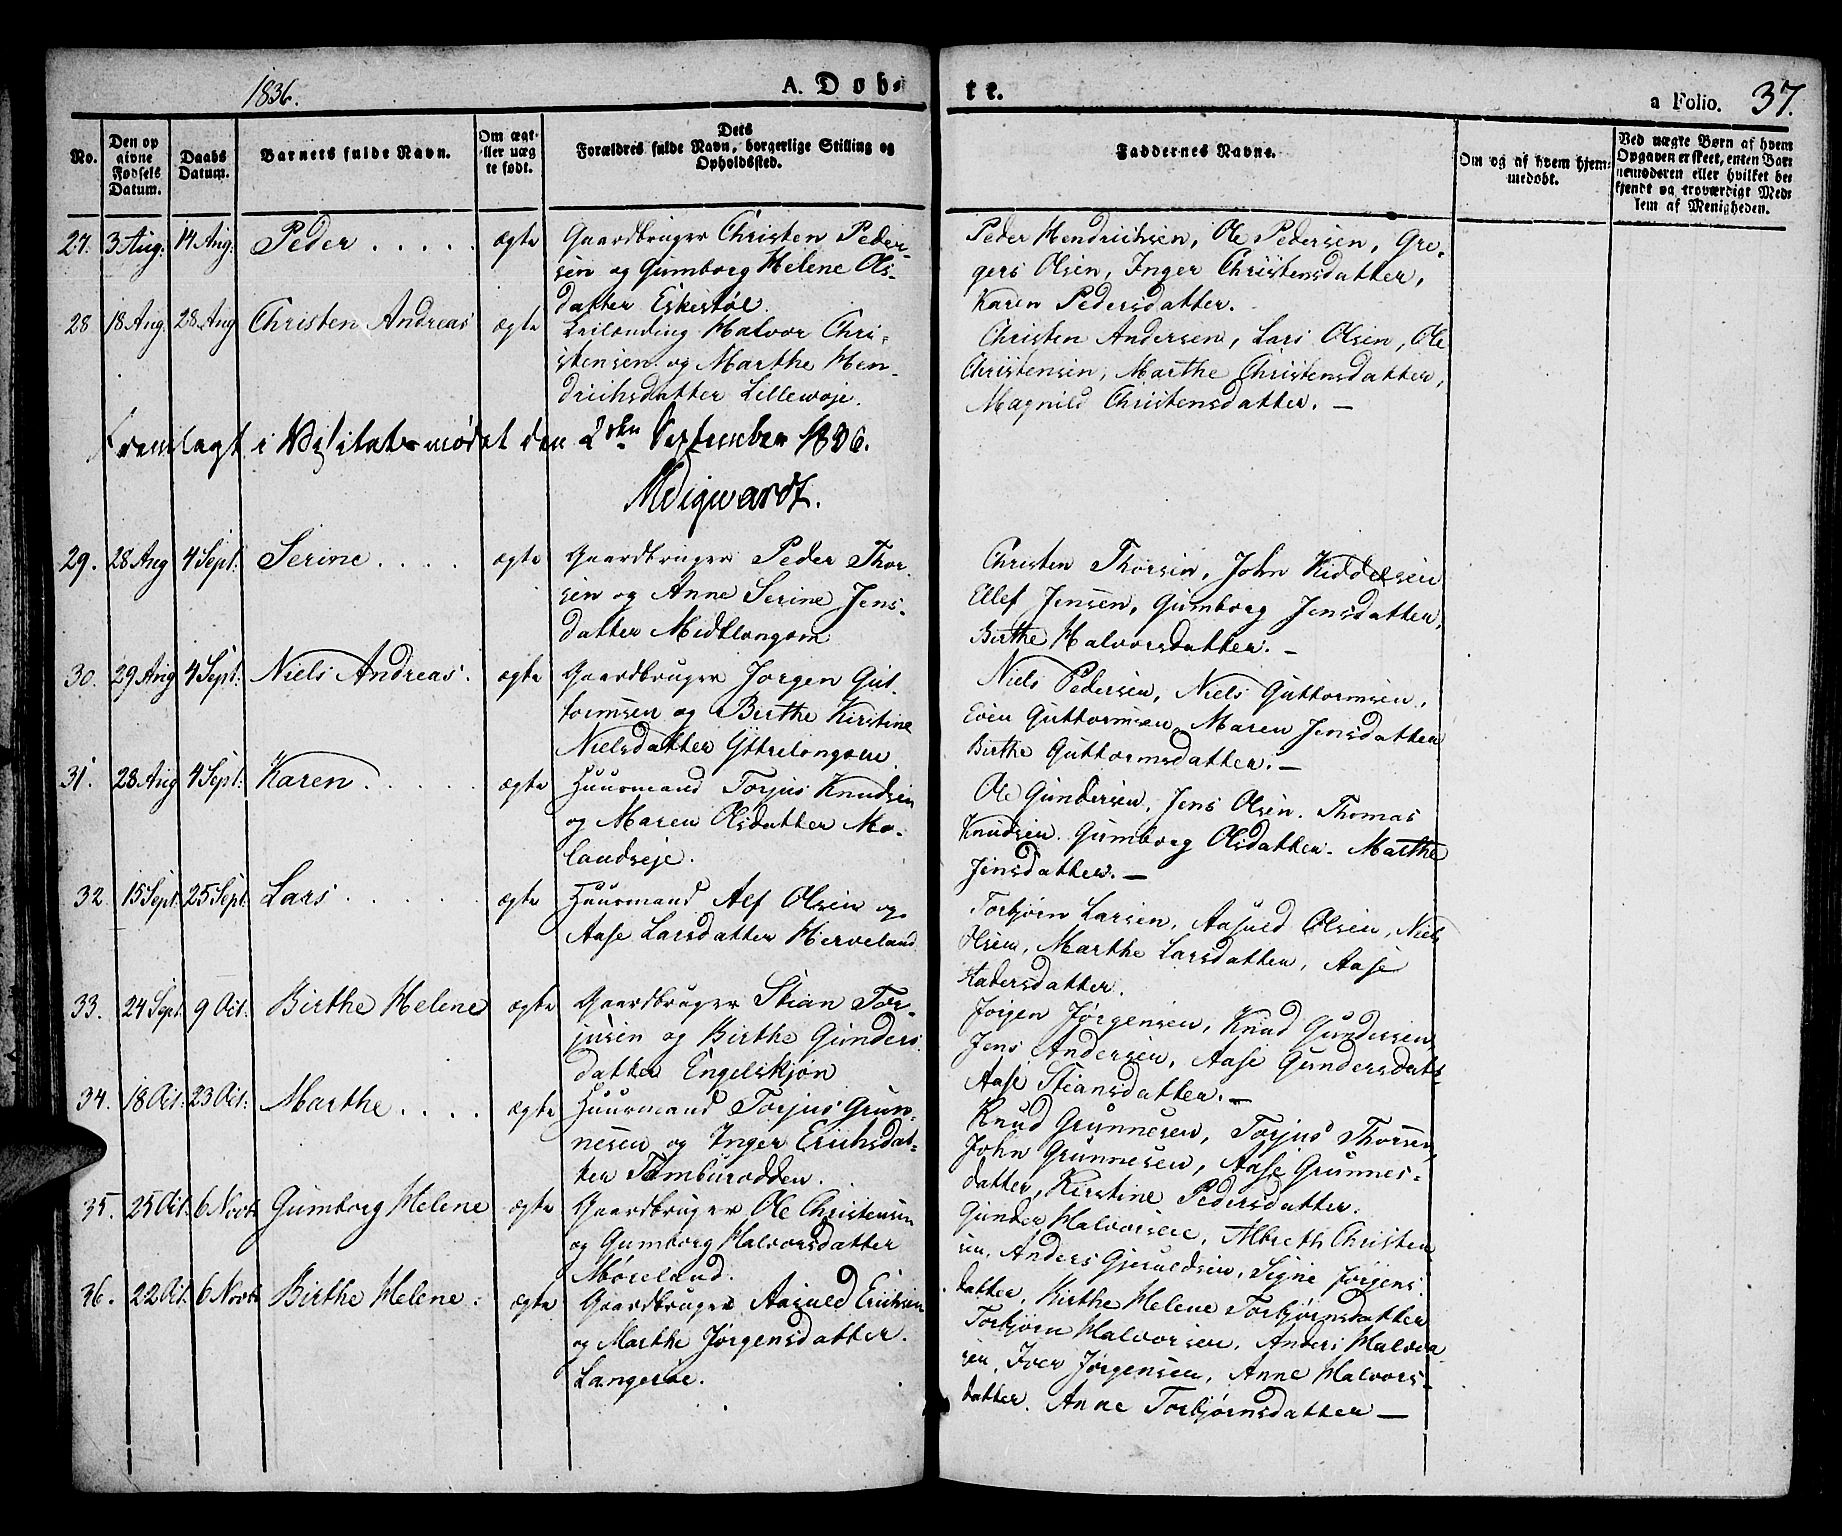 1836.
A. Døb-
te.
a Folio. 37.
No.
Den op
givne
Fødsels
Datum.
Daabs
Datum.
Barnets fulde Navn.
Om ægt-
eller uæg
te født.
Dets
Forældres fulde Navn, borgerlige Stilling og
Opholdssted.
Faddernes Navne.
Om og af hvem hjem-
medøbt.
Ved uægte Børn af hvem
Opgaven er skeet, enten Bar-
nemoderen eller hvilket be-
kjendt og troværdigt Med-
lem af Menigheden.
27. 3 Aug: 14 Aug: Peder . . . . . ægte Gaardbruger Christen Peder-
sen og Gumborg Helene Ols-
datter Eskestøl.
Peder Hendrichsen, Ole Pedersen, Gre-
gers Olsen, Inger Christensdatter,
Karen Pedersdatter.
28 18 Aug. 28 Aug Christen Andreas ægte Leilænding Halvor Chri-
stensen og Marthe Hen-
drichsdatter Lillewøje.
Christen Andersen, Lars Olsen, Ole
Christensen, Marthe Christensdatter,
Magnild Christensdatter. —
Fremlagt i Visitatsmødet den 2den September 1836.
29. 28 Aug 4 Sept: Serine . . . . ægte Gaardbruger Peder Thor-
sen og Anne Serine Jens-
datter Midtlongom
Christen Thorsen, John Kiddelsen
Ellef Jensen, Gumborg Jensdatter,
Birthe Halvorsdatter. —
30. 29 Aug 4 Sept: Niels Andreas. ægte Gaardbruger Jørgen Gut-
tormsen og Birthe Kirstine
Nielsdatter Yttrelongom.
Niels Pedersen, Niels Guttormsen,
Even Guttormsen, Maren Jensdatter
Birthe Guttormsdatter. —
31. 28 Aug 4 Sept: Karen . . . . . ægte Huusmand Torjus Knudsen
og Maren Olsdatter Mo-
landseje.
Ole Gundersen, Jens Olsen. Thomas
Knudsen. Gumborg Olsdatter. Marthe
Jensdatter. —
32. 15 Sept. 25 Sept. Lars . . . . . ægte Huusmand Alf Olsen og
Aase Larsdatter Herveland
Torbjørn Larsen, Aasuld Olsen, Niels
Olsen, Marthe Larsdatter, Aase
33. 24 Sept. 9 Oct. Birthe Helene ægte Gaardbruger Stian Tor-
jusen og Birthe Gunders-
datter Engelskjøn
Jørgen Jørgensen, Knud Gundersen,
Jens Andersen, Aase Gundersdatt-
Aase Stiansdatter. —
34. 18 Oct. 23 Oct. Marthe . . . . ægte Huusmand Torjus Grun-
nesen og Inger Erichsdat-
ter Tamburodden.
Knud Grunnesen, Torjus Thorsen,
John Grunnesen, Aase Grunnes-
datter, Kirstine Pedersdatter.
35. 25 Oct. 6 Novb. Gumborg Helene ægte Gaardbruger Ole Christensen
og Gumborg Halvorsdatter
Møreland.
Gunder Halvorsen, Albreth Christen-
sen, Anders Gjeruldsen, Signe Jørgens-
datter, Birthe Helene Torbjørnsdatter
36. 22 Oct. 6 Novb. Birthe Helene. ægte Gaardbruger Aasuld Erichsen
og Marthe Jørgensdatter.
Langeröe.
Torbjørn Halvorsen, Anders Halvor-
sen, Iver Jørgensen, Anne Halvors-
datter. Anne Torbjørnsdatter —